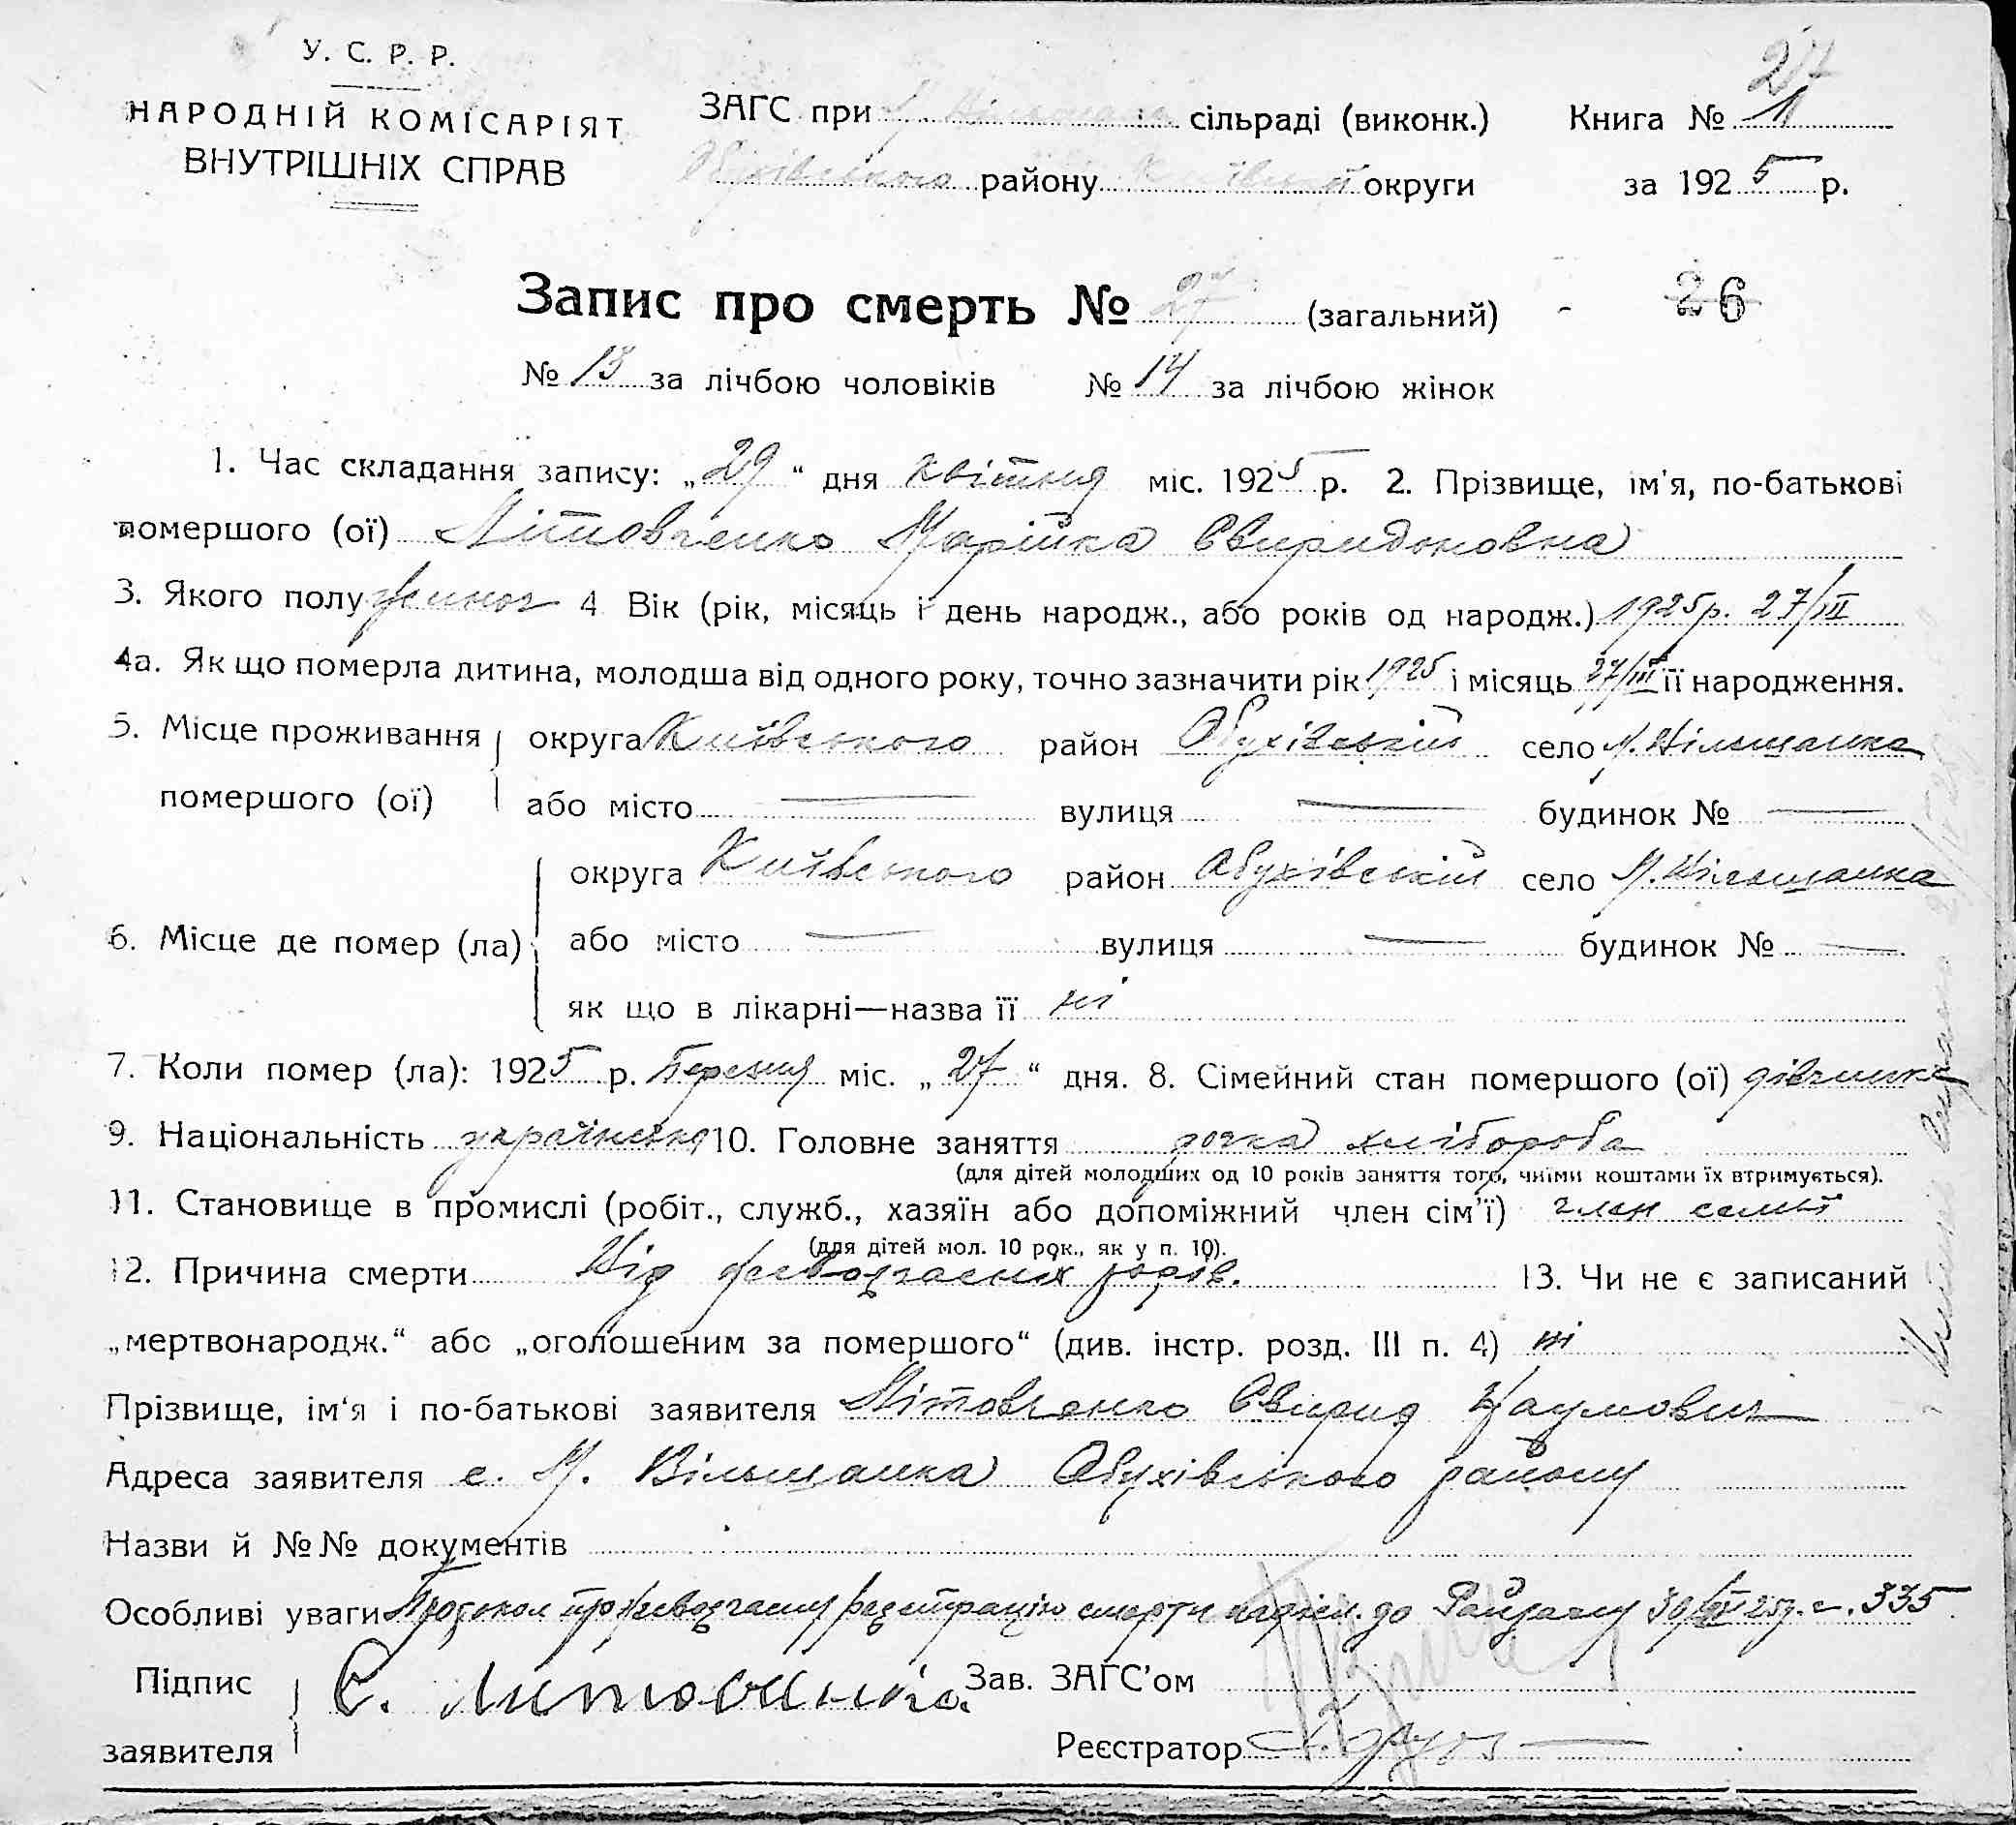 У. С. Р. Р.
НАРОДНІЙ КОМІСАРІЯТ
ВНУТРІШНІХ СПРАВ
ЗАГС при М. Вільшанка сільраді (виконк.)
Обухівського району Київської округи
27
Книга № 11
за 1925 р.
Запис про смерть № 27 (загальний) - 26
№ 13 за лічбою чоловіків № 14 за лічбою жінок
1. Час складання запису: „29“ дня квітня міс. 1925 р. 2. Прізвище, ім'я, по-батькові
помершого (ої) Літовченко Марійка Свиридоновна
3. Якого полу жіноч 4 Вік (рік, місяць і день народж., або років од народж.) 1925р. 27/III
4а. Як що померла дитина, молодша від одного року, точно зазначити рік 1925 і місяць 27/III її народження.
5. Місце проживання округа Київського район Обухівській село М. Вільшанка
помершого (ої) або місто — вулиця — будинок № —
округа Київського район Обухівській село М. Вільшанка
6. Місце де помер (ла) або місто — вулиця — будинок № —
як що в лікарні—назва її ні
7. Коли помер (ла): 1925 р. Березня міс. „27“ дня. 8. Сімейний стан помершого (ої) дівчинка
9. Національність українська 10. Головне заняття дочка хлібороба
(для дітей молодших од 10 років заняття того, чиїми коштами їх втримується).
11. Становище в промислі (робіт., служб., хазяїн або допоміжний член сім'ї) член семьї
(для дітей мол. 10 рок., як у п. 10).
12. Причина смерти Від передчасних родів. 13. Чи не є записаний
„мертвонародж.“ або „оголошеним за помершого“ (див. інстр. розд. III п. 4) ні
Прізвище, ім'я і по-батькові заявителя Літовченко Свирид Наумович
Адреса заявителя с. М. Вільшанка Обухівського району
Назви й №№ документів
Особливі уваги Протокол про смерти до 335
Підпис
заявителя С. Литовченко.
Зав. ЗАГС'ом
Реєстратор